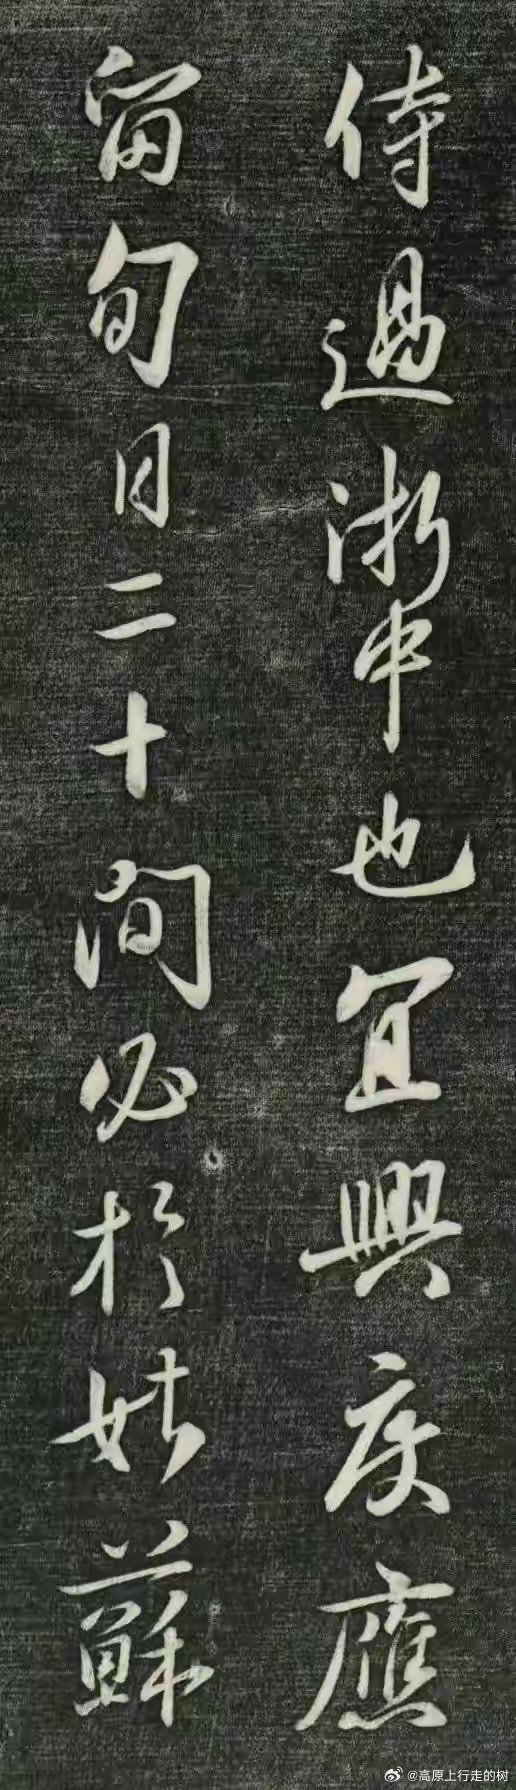 侍過浙中也宜興度應
留旬日二十間必於姑蘇
@高原上行走的树